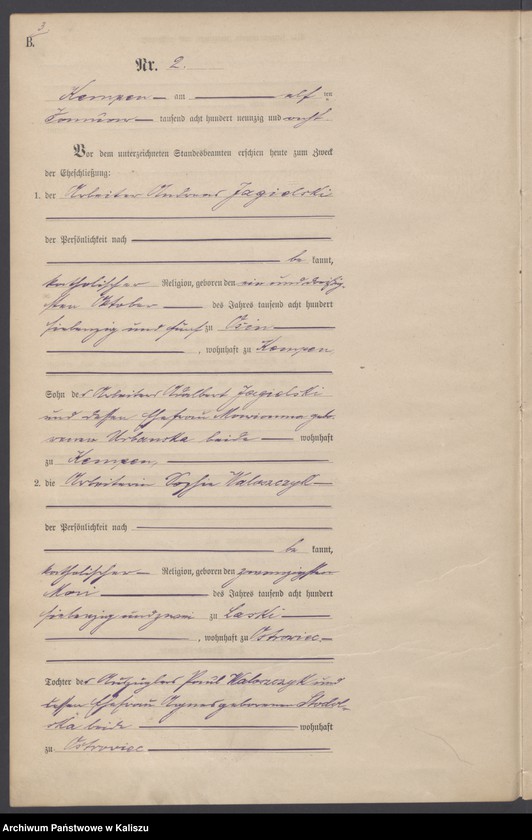 3
B.
Nr. 2.
Kempen am elf ten
Januar tausend acht hundert neunzig und acht
Vor dem unterzeichneten Standesbeamten erschien heute zum Zweck
der Eheschließung:
1. der Arbeiter Andreas Jagielski
der Persönlichkeit nach
be kannt,
katholischer Religion, geboren den ein und dreißig-
sten Oktober des Jahres tausend acht hundert
siebenzig und fünf zu Osien
, wohnhaft zu Kempen
Sohn des Arbeiters Adalbert Jagielski
und dessen Ehefrau Marianna gebo-
renen Urbanska beide wohnhaft
zu Kempen,
2. die Arbeiterin Sophie Waloszczyk
der Persönlichkeit nach
be kannt,
katholischer Religion, geboren den zwanzigsten
Mai des Jahres tausend acht hundert
siebenzig und zwei zu Laski
, wohnhaft zu Ostrowiec
Tochter des Auszüglers Paul Waloszczyk und
dessen Ehefrau Agnes geborenen Stodol-
ska beide wohnhaft
zu Ostrowiec
Archiwum Państwowe w Kaliszu